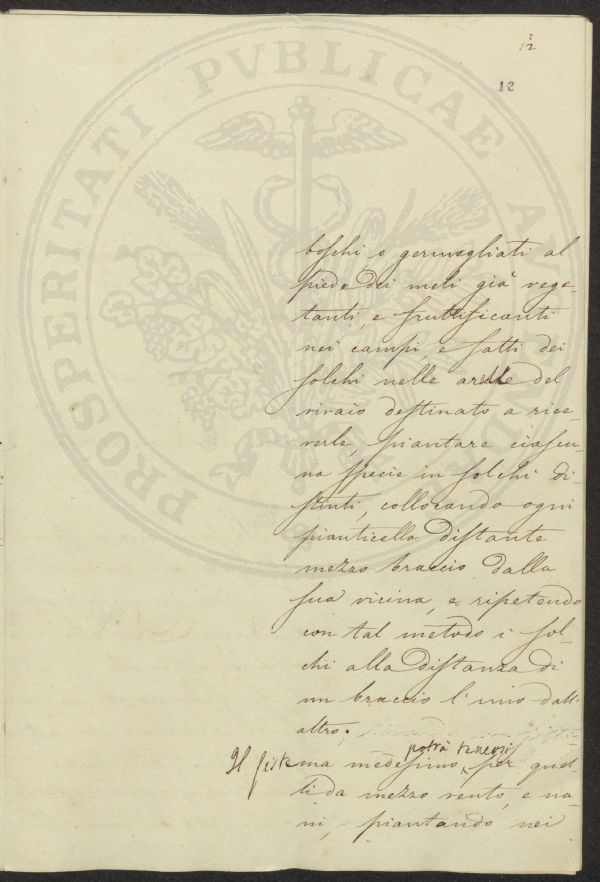 12
12
PROSPERITATI PVBLICAE
boschi o germogliati al
piede dei meli già vege-
tanti, e fruttificanti
nei campi, e fatti dei
solchi nelle arelle del
vivaio destinato a rice-
verle, piantare ciascu-
na specie in solchi di-
stinti, collocando ogni
pianticella distante
mezzo braccio dalla
sua vicina, e ripetendo
con tal metodo i sol-
chi alla distanza di
un braccio l'uno dall'
altro.
potrà tenersi
Il sistema medesimo per quel-
li da mezzo vento, e na-
ni, piantando nei